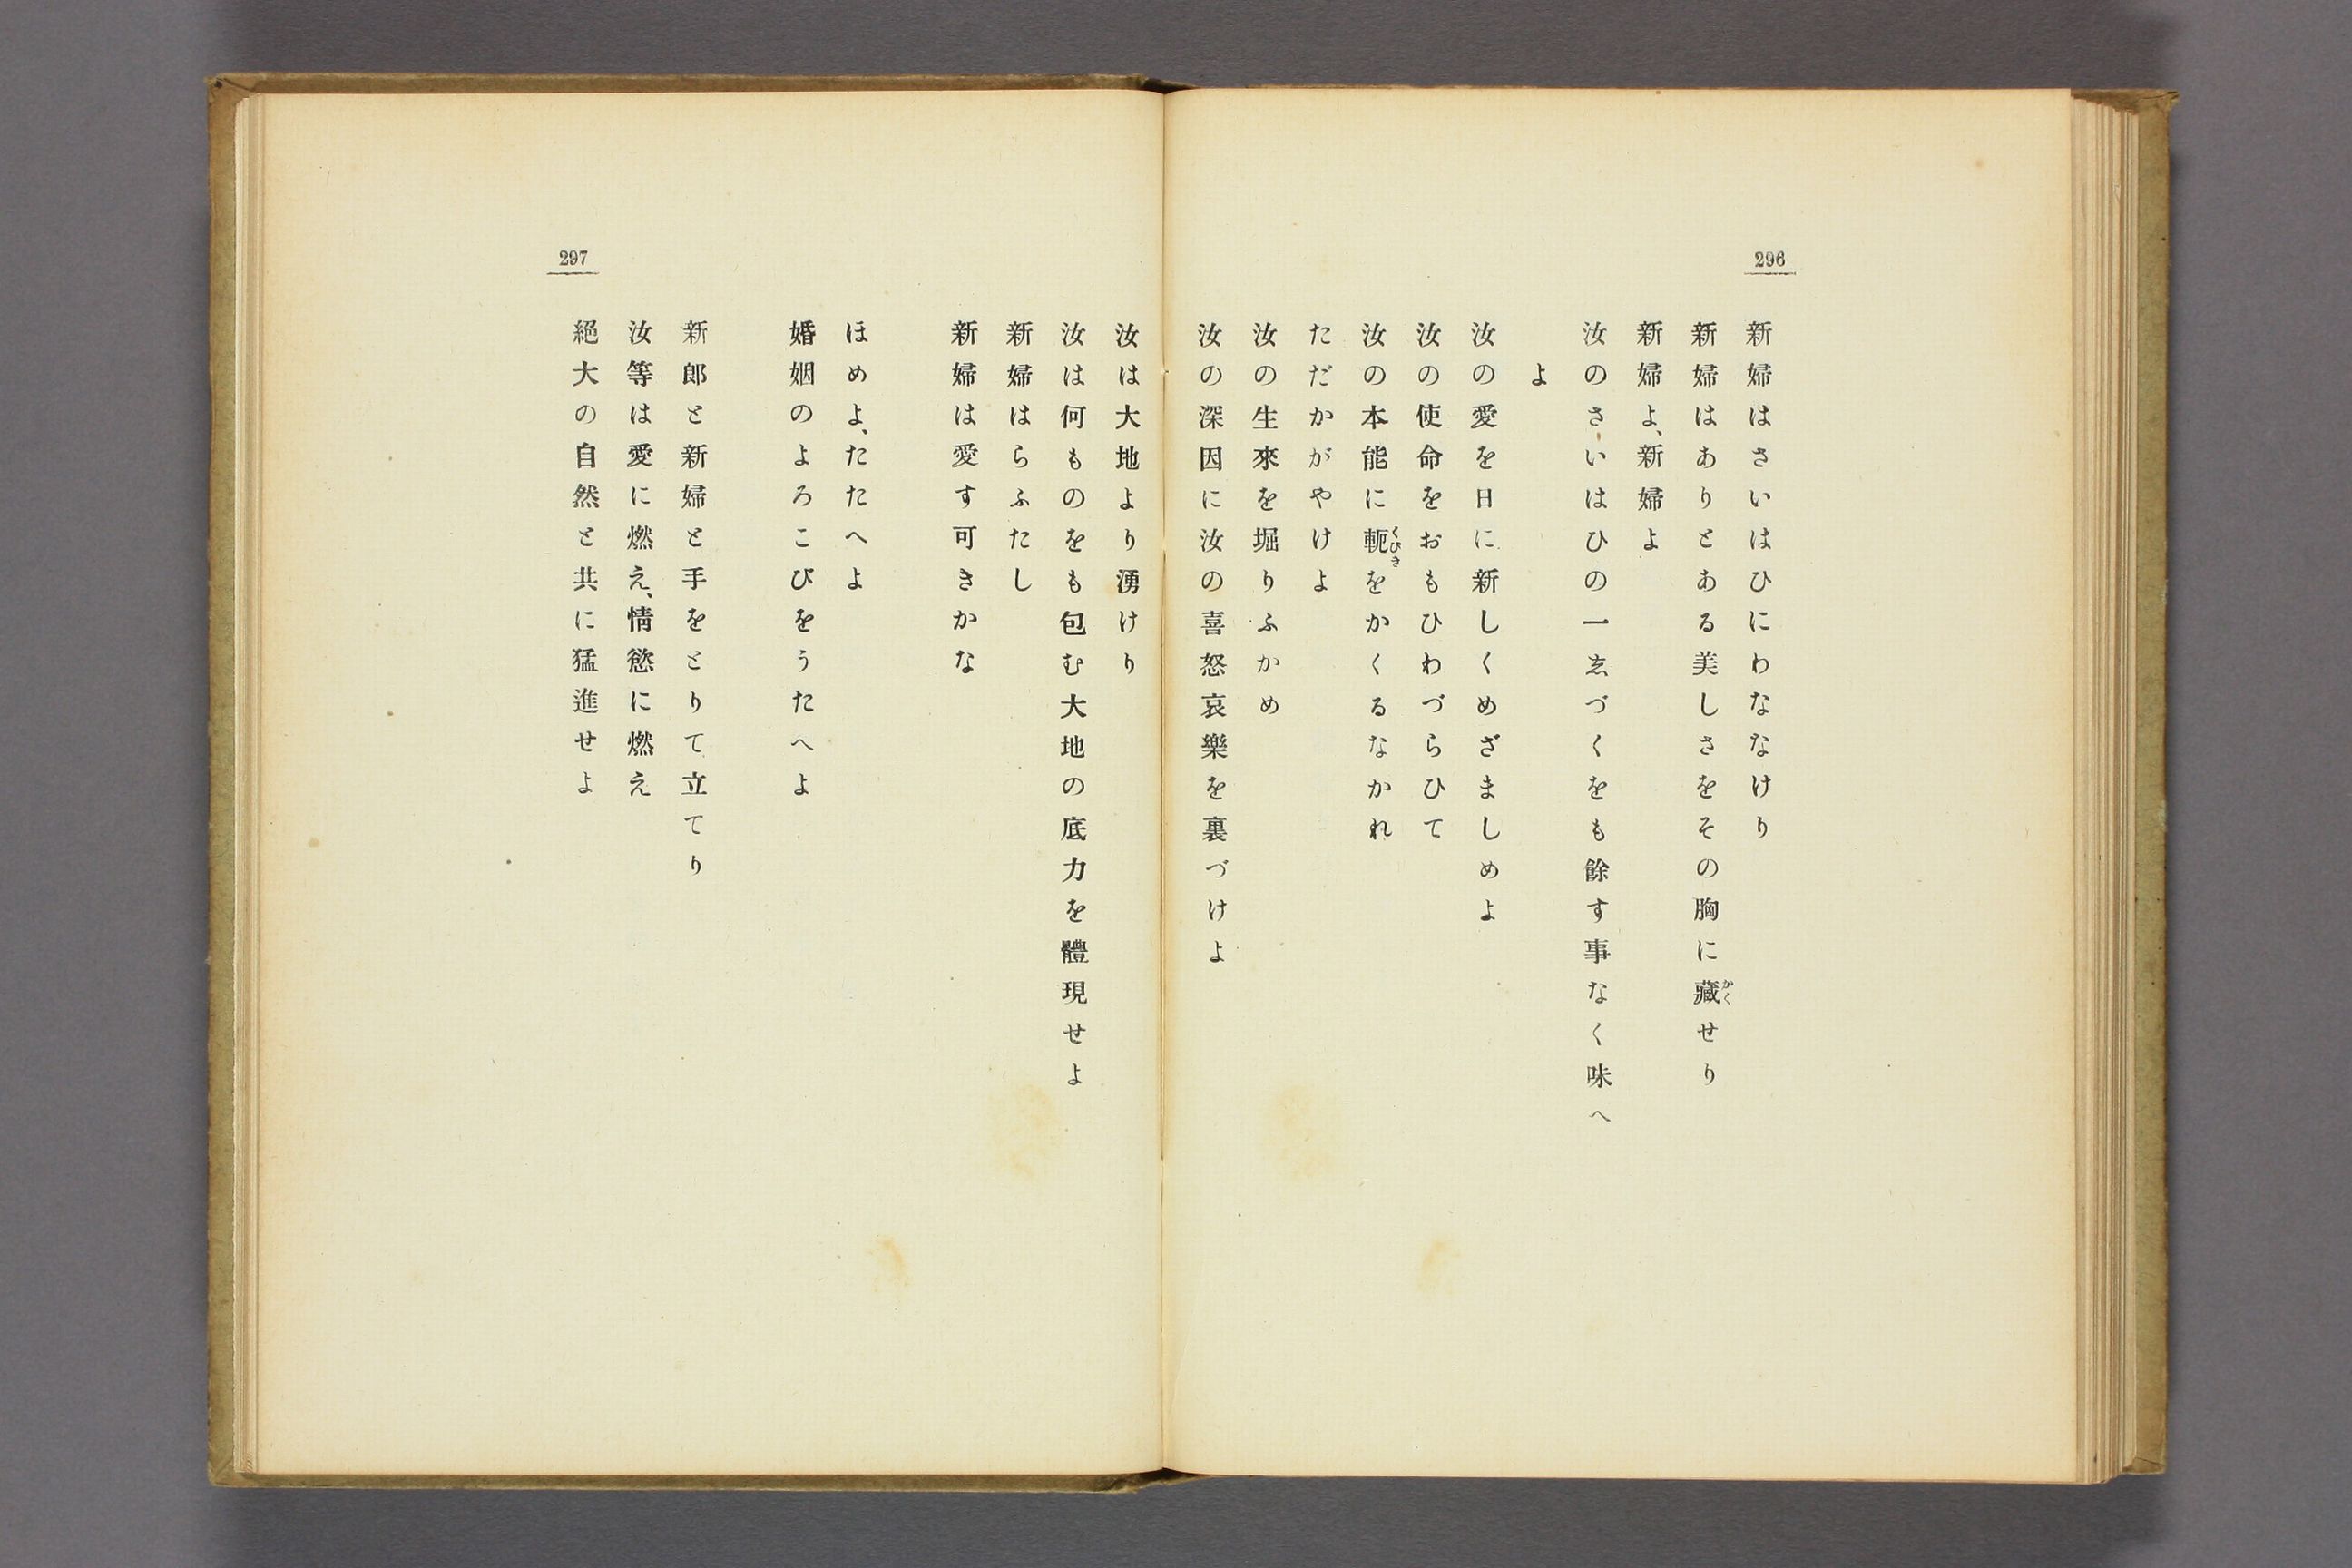 296
新婦はさいはひにわななけり
新婦はありとある美しさをその胸に藏せり
新婦よ、新婦よ
汝のさいはひの一ゑづくをも餘す事なく味へ
よ
汝の愛を日に新しくめざましめよ
汝の使命をおもひわづらひて
汝の本能に軛をかくるなかれ
ただかがやけよ
汝の生來を堀りふかめ
汝の深因に汝の喜怒哀樂を裏づけよ
297
汝は大地より湧けり
汝は何ものをも包む大地の底力を體現せよ
新婦はらふたし
新婦は愛す可きかな
ほめよ、たたへよ
婚姻のよろこびをうたへよ
新郎と新婦と手をとりて立てり
汝等は愛に燃え、情慾に燃え
絕大の自然と共に猛進せよ